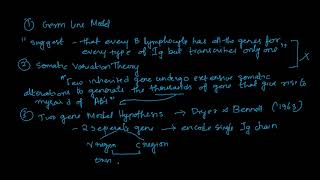 ① Germ Line Model
"suggest - that every B lymphocyte has all the genes for
every type of Ig but transcribes only one"
② Somatic Variation Theory
"Few inherited gene undergo extensive somatic
alterations to generate the thousands of gene that give rise to
myriad of "Abs"
③ Two gene Model Hypothesis → Dryer & Bennett (1965)
- 2 separate gene → encode single Ig chain
V region C region